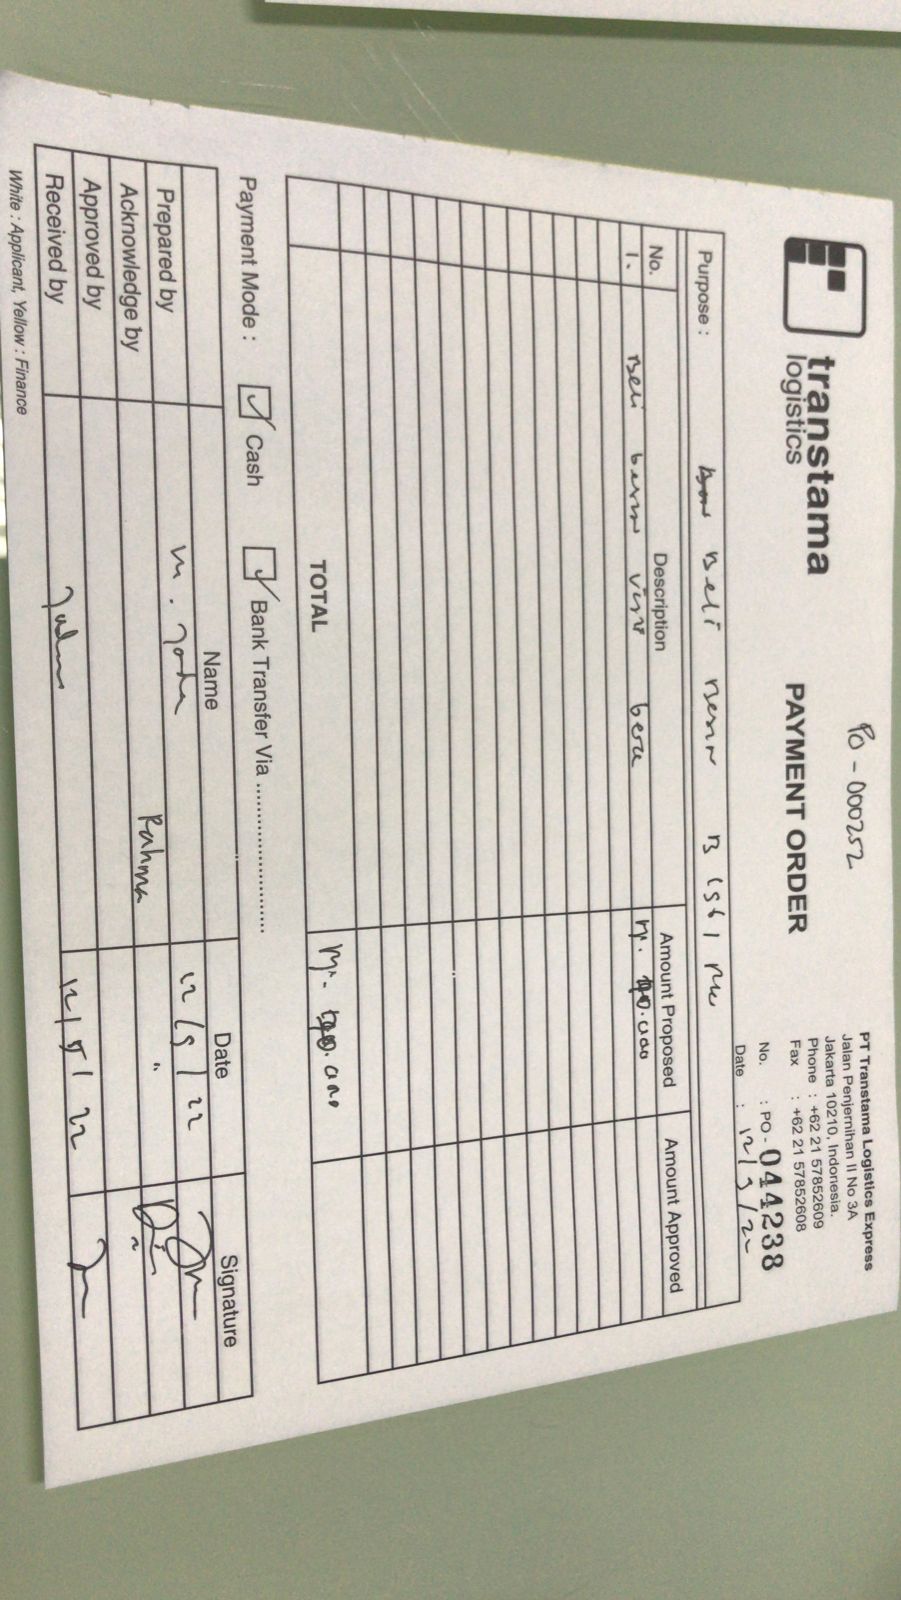 PO - 000252
transtama
logistics
PAYMENT ORDER
PT Transtama Logistics Express
Jalan Penjernihan II No 3A
Jakarta 10210, Indonesia.
Phone : +62 21 57852609
Fax : +62 21 57852608
No. : PO - 044238
Date : 12/9/22
Purpose : Beli
No. Description Amount Proposed Amount Approved
1. Beli
TOTAL
Payment Mode : Cash Bank Transfer Via ........................
Name Date Signature
Prepared by M. 12/9/22
Acknowledge by Rahma "
Approved by
Received by 12/9/22
White : Applicant, Yellow : Finance